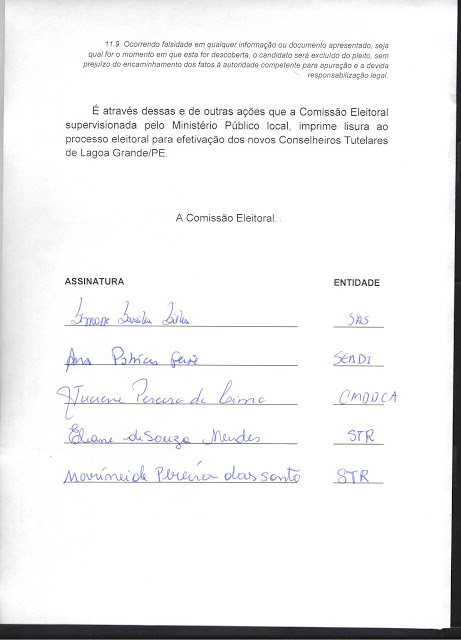 11.9. Ocorrendo falsidade em qualquer informação ou documento apresentado, seja
qual for o momento em que esta for descoberta, o candidato será excluído do pleito, sem
prejuízo do encaminhamento dos fatos à autoridade competente para apuração e a devida
responsabilização legal.
É através dessas e de outras ações que a Comissão Eleitoral
supervisionada pelo Ministério Público local, imprime lisura ao
processo eleitoral para efetivação dos novos Conselheiros Tutelares
de Lagoa Grande/PE.
A Comissão Eleitoral.
ASSINATURA ENTIDADE
SAS
Ana
Pereira de Lima CMDDCA
Eliane de Souza Mendes STR
Pereira dos santo STR